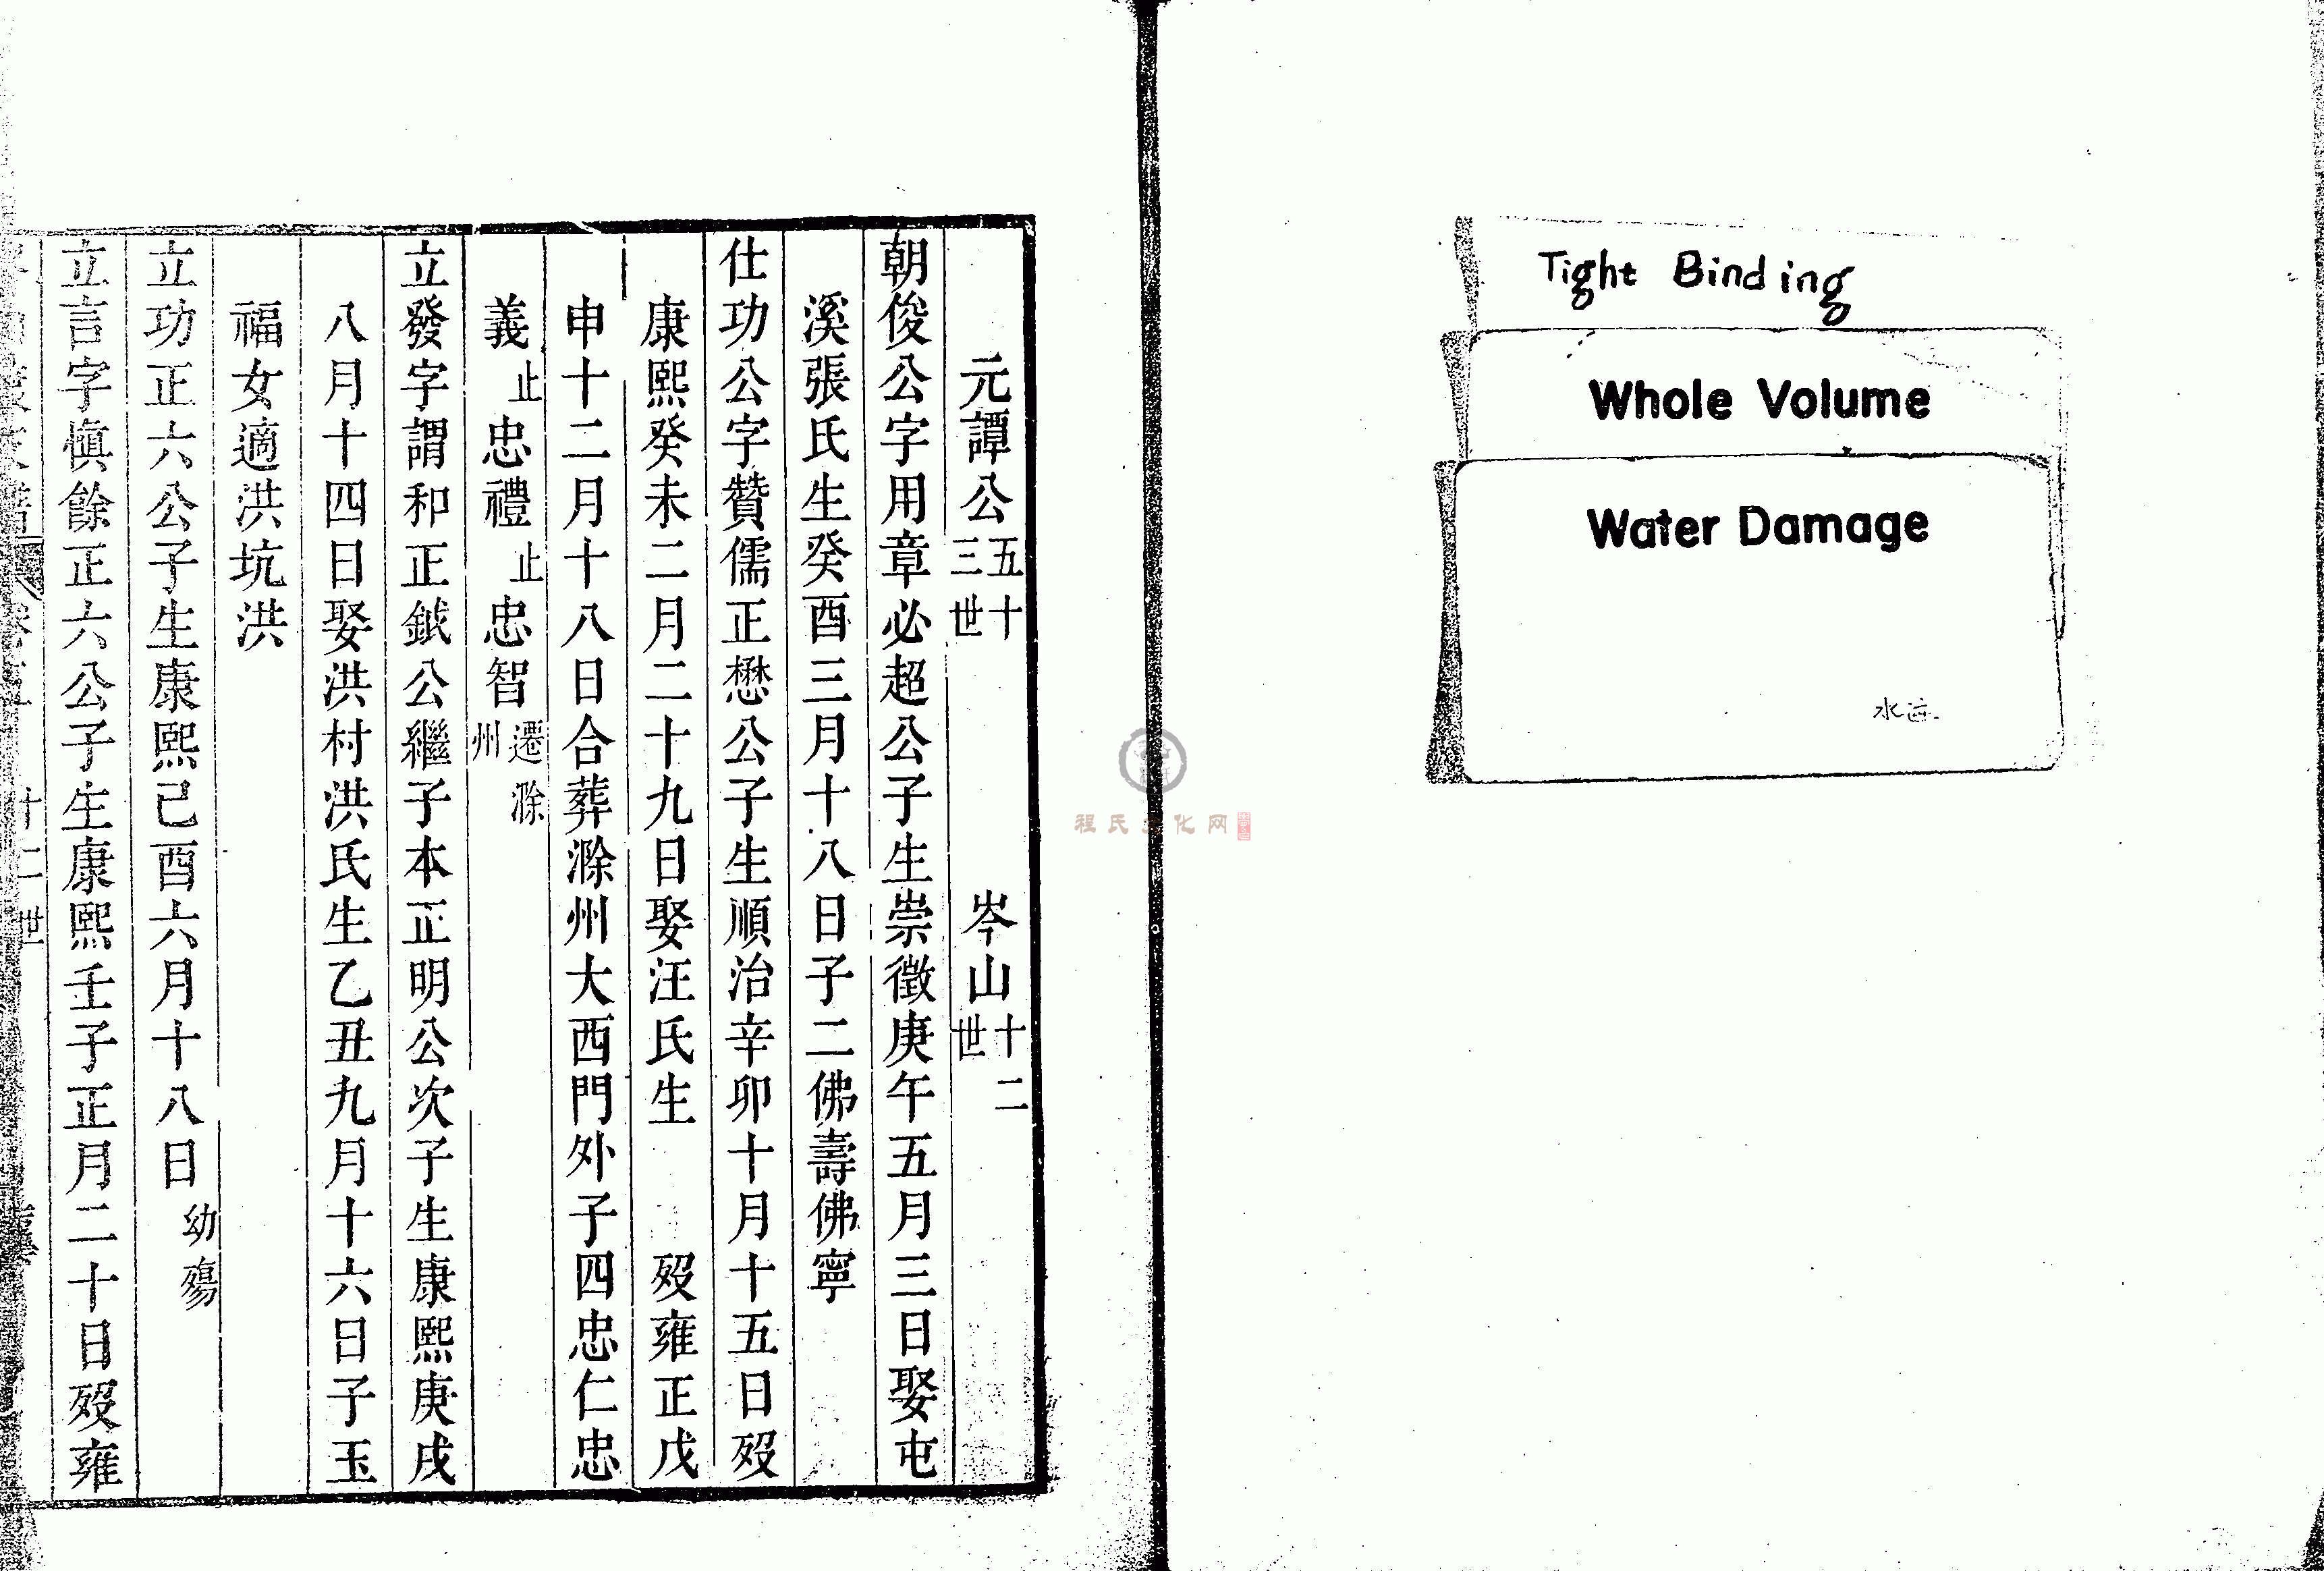 Tight Binding
Whole Volume
Water Damage
水迹
程氏文化网
元譚公五十三世 岑山十二世
朝俊公字用章必超公子生崇徵庚午五月三日娶屯
溪張氏生癸酉三月十八日子二佛壽佛寧
仕功公字贊儒正懋公子生順治辛卯十月十五日歿
康熙癸未二月二十九日娶汪氏生 歿雍正戊
申十二月十八日合葬滁州大西門外子四忠仁忠
義止忠禮止忠智遷滁州
立發字謂和正鉞公繼子本正明公次子生康熙庚戌
八月十四日娶洪村洪氏生乙丑九月十六日子玉
福女適洪坑洪
立功正六公子生康熙己酉六月十八日幼殤
立言字慎餘正六公子生康熙壬子正月二十日歿雍
十二世